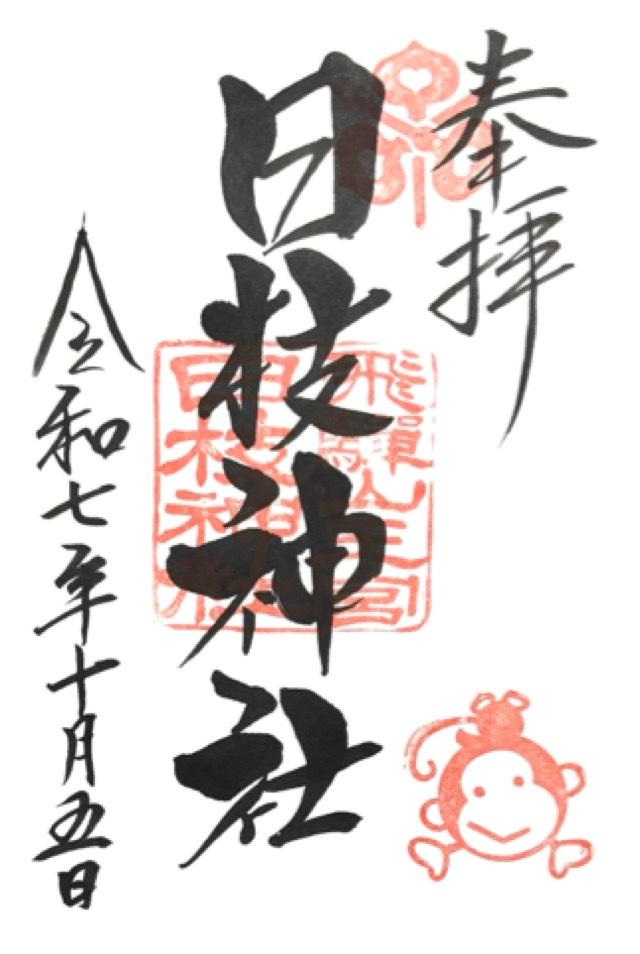 奉拝
日枝神社
令和七年十月五日
飛驒山王宮
日枝神社